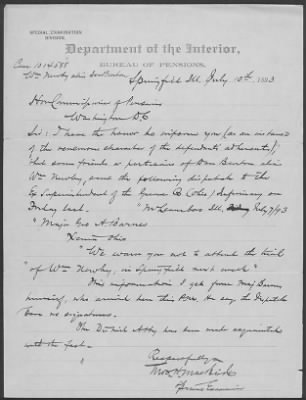 SPECIAL EXAMINATION
DIVISION.
Department of the Interior,
BUREAU OF PENSIONS,
Case 1014588
Wm Newby alias Dan Benton
Springfield Ill, July 10th, 1893
Hon Commissioner of Pensions
Washington D.C
Sir: I have the honor to inform you (as an instance
of the venomous character of the defendants adherents),
that some friends or partisans of Dan Benton alias
Wm Newby, send the following dispatch to the
Ex Superintendent of the Greene Co (Ohio) Infirmary on
Friday last.
" McLeansboro Ill, July 7/93
" Major Geo A Barnes
Xenia Ohio
" We warn you not to attend the trial
" of Wm Newby, in Springfield next week "
This information I get from Maj Barnes
himself, who arrived here this P.M. He says the dispatch
bore no signature.
The District Atty has been made acquainted
with the fact.
Respectfully
Special Examiner